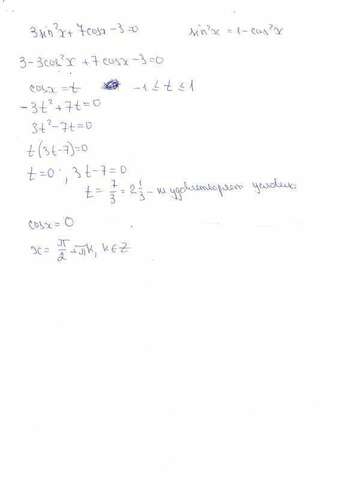 3sin²x + 7cosx - 3 = 0 sin²x = 1 - cos²x
3 - 3cos²x + 7cosx - 3 = 0
cosx = t -1 ≤ t ≤ 1
-3t² + 7t = 0
3t² - 7t = 0
t(3t-7) = 0
t = 0; 3t - 7 = 0
t = 7/3 = 2 1/3 - не удовлетворяет
cosx = 0
x = π/2 + πk, k ∈ Z